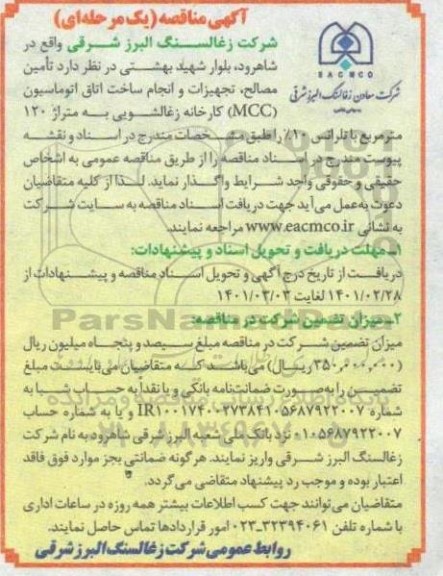 آگهی مناقصه (یک مرحله‌ای)
شرکت زغالسنگ البرز شرقی واقع در
شاهرود، بلوار شهید بهشتی در نظر دارد تأمین
مصالح، تجهیزات و انجام ساخت اتاق اتوماسیون
(MCC) کارخانه زغالشویی به متراژ ۱۲۰
EACMCO
شرکت معادن زغالسنگ البرز شرقی
مترمربع با تلرانس ۱۰٪ را طبق مشخصات مندرج در اسناد و نقشه
پیوست مندرج در اسناد مناقصه را از طریق مناقصه عمومی به اشخاص
حقیقی و حقوقی واجد شرایط واگذار نماید. لذا از کلیه متقاضیان
دعوت به عمل می‌آید جهت دریافت اسناد مناقصه به سایت شرکت
به نشانی www.eacmco.ir مراجعه نمایند.
۱ـ مهلت دریافت و تحویل اسناد و پیشنهادات:
دریافت از تاریخ درج آگهی و تحویل اسناد مناقصه و پیشنهادات از
۱۴۰۱/۰۲/۲۸ لغایت ۱۴۰۱/۰۳/۰۳
۲ـ میزان تضمین شرکت در مناقصه:
میزان تضمین شرکت در مناقصه مبلغ سیصد و پنجاه میلیون ریال
(۳۵۰٫۰۰۰٫۰۰۰ ریال) می‌باشد که متقاضیان می‌بایست مبلغ
تضمین را به صورت ضمانتنامه بانکی و یا نقداً به حساب شبا به
شماره IR۱۰۰۱۷۰۰۰۰۰۰۰ و یا به شماره حساب
۰۱۰۵۶۸۷۹۲۲۰۰۷ نزد بانک ملی شعبه البرز شرقی شاهرود به نام شرکت
زغالسنگ البرز شرقی واریز نمایند. هرگونه ضمانتی بجز موارد فوق فاقد
اعتبار بوده و موجب رد پیشنهاد متقاضی می‌گردد.
متقاضیان می‌توانند جهت کسب اطلاعات بیشتر همه روزه در ساعات اداری
با شماره تلفن ۳۲۳۹۴۰۶۱-۰۲۳ امور قراردادها تماس حاصل نمایند.
روابط عمومی شرکت زغالسنگ البرز شرقی
ParsNamadData